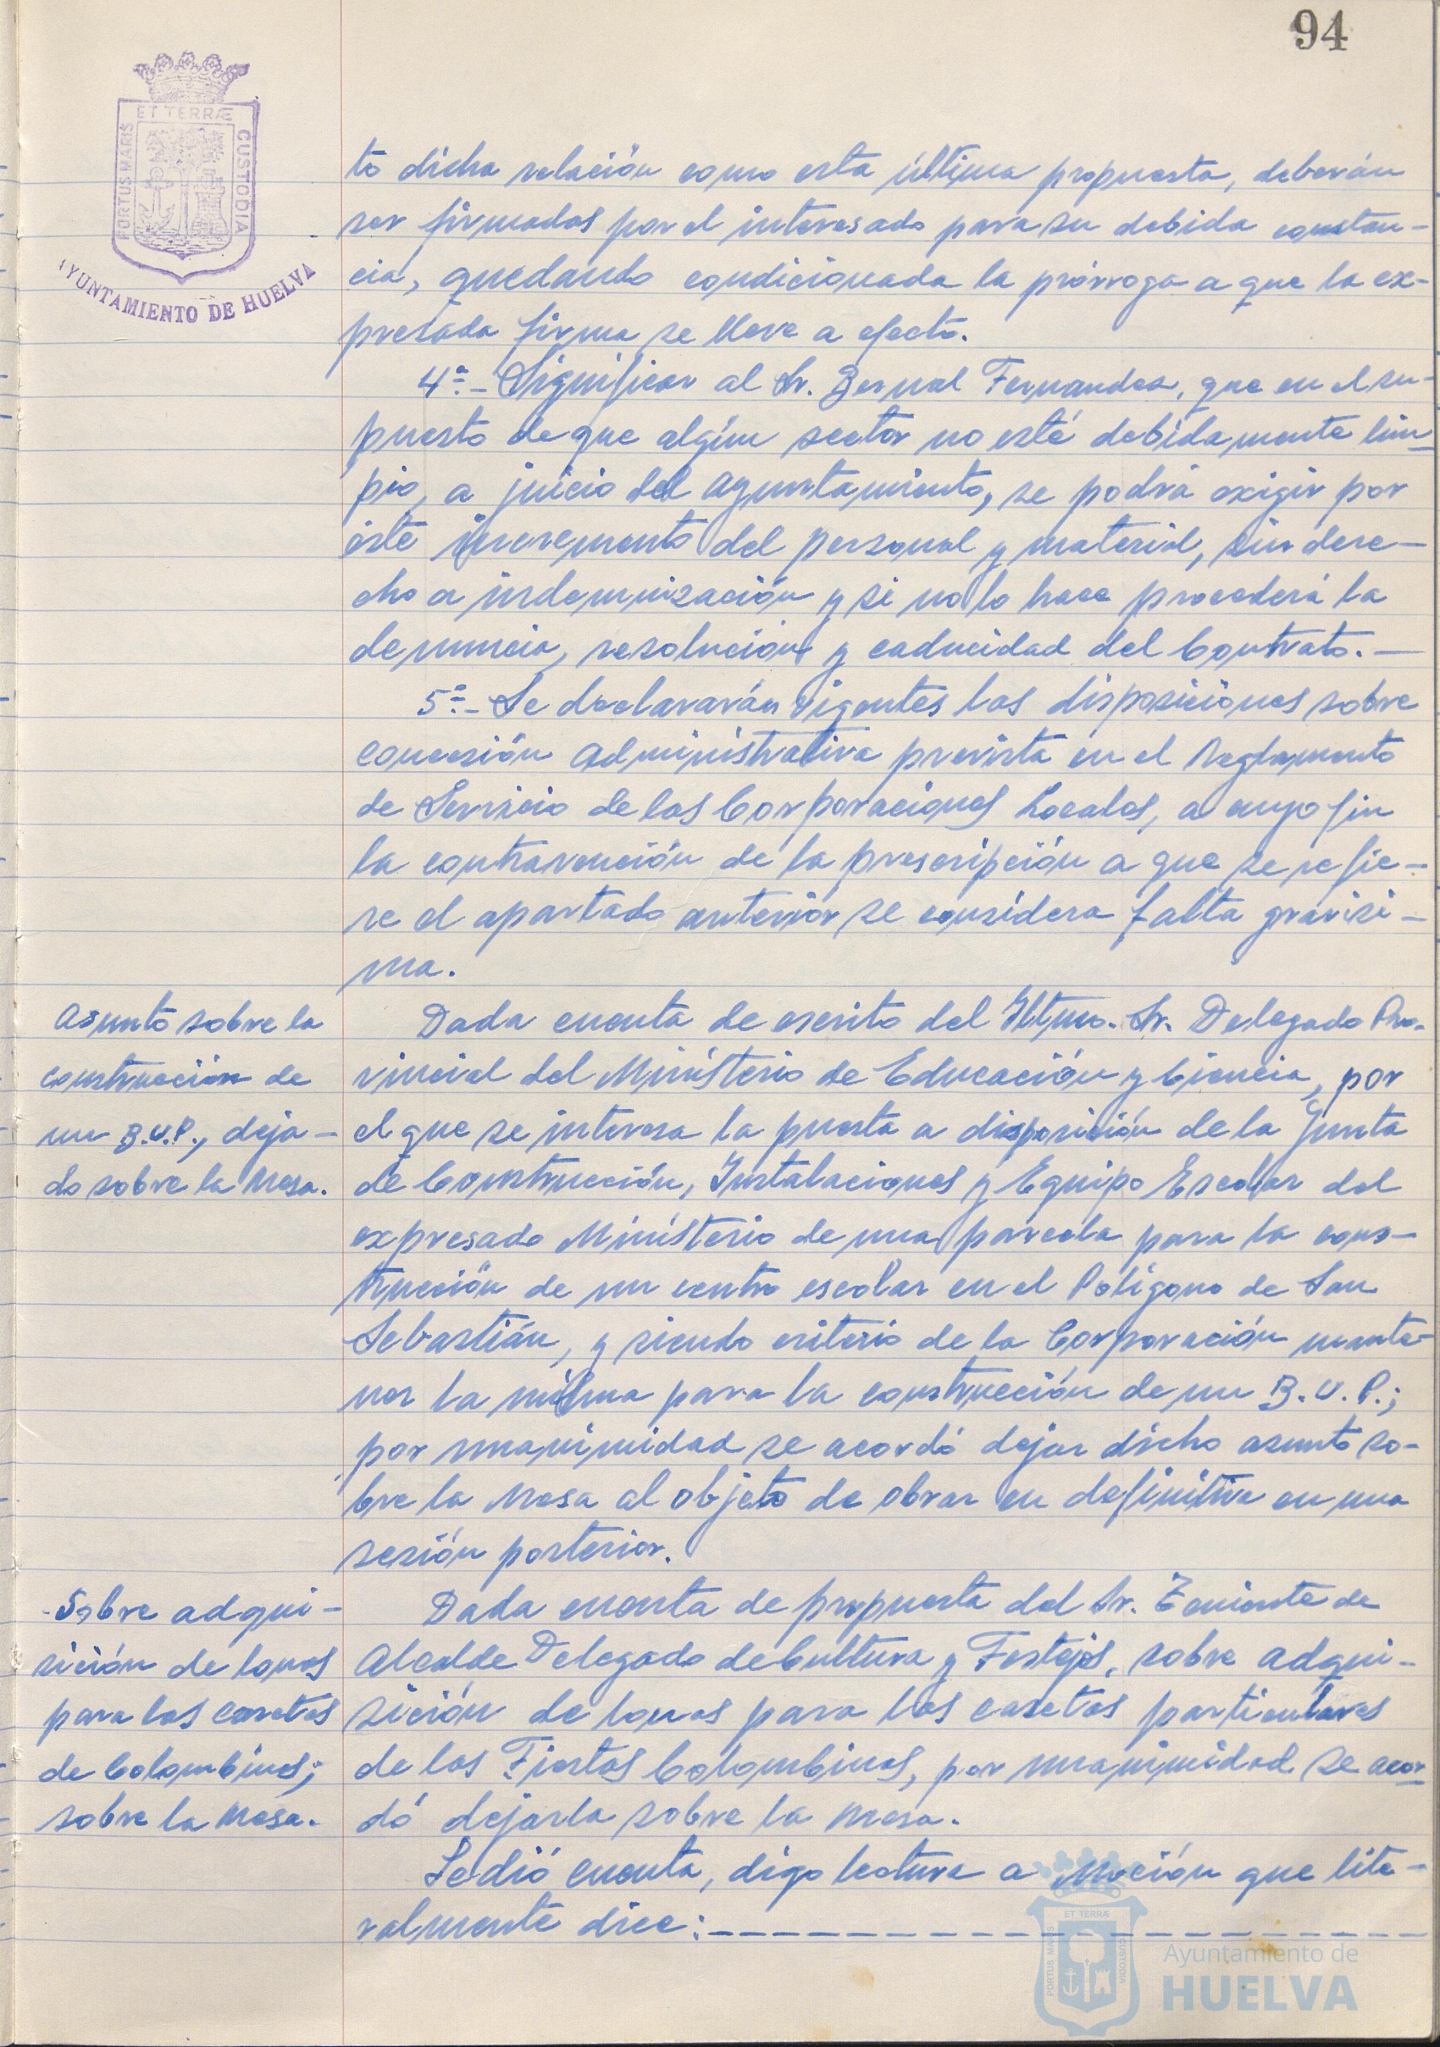 94
ET TERRÆ
PORTUS MARIS
CUSTODIA
AYUNTAMIENTO DE HUELVA
to dicha relación como esta última propuesta, deberán
ser firmadas por el interesado para su debida constan-
cia, quedando condicionada la prórroga a que la ex-
presada firma se lleve a efecto.
4ª.- Significar al Sr. Bernal Fernandez, que en el su-
puesto de que algún sector no esté debidamente lim-
pio, a juicio del Ayuntamiento, se podrá exigir por
éste incremento del personal y material, sin dere-
cho a indemnización y si no lo hace procederá la
denuncia, resolución y caducidad del Contrato.-
5ª.- Se declararán vigentes las disposiciones sobre
concesión administrativa prevista en el Reglamento
de Servicio de las Corporaciones Locales, a cuyo fin
la contravención de la prescripción a que se refie-
re el apartado anterior se considera falta gravisi-
ma.
Asunto sobre la
construcción de
un B.U.P., deja-
do sobre la Mesa.
Dada cuenta de escrito del Iltmo. Sr. Delegado Pro-
vincial del Ministerio de Educación y Ciencia, por
el que se interesa la puesta a disposición de la Junta
de Construcción, Instalaciones y Equipo Escolar del
expresado Ministerio de una parcela para la cons-
trucción de un centro escolar en el Polígono de San
Sebastián, y siendo criterio de la Corporación mante-
ner la misma para la construcción de un B.U.P.;
por unanimidad se acordó dejar dicho asunto so-
bre la Mesa al objeto de obrar en definitiva en una
sesión posterior.
Sobre adqui-
sición de lonas
para las casetas
de Colombinas;
sobre la Mesa.
Dada cuenta de propuesta del Sr. Teniente de
Alcalde Delegado de Cultura y Festejos, sobre adqui-
sición de lonas para las casetas particulares
de las Fiestas Colombinas, por unanimidad se acor-
dó dejarla sobre la Mesa.
Se dió cuenta, digo lectura a Moción que lite-
ralmente dice:- - - - - - - - - - - - - - - - - - - -
ET TERRÆ
PORTUS MARIS
CUSTODIA
Ayuntamiento de
HUELVA